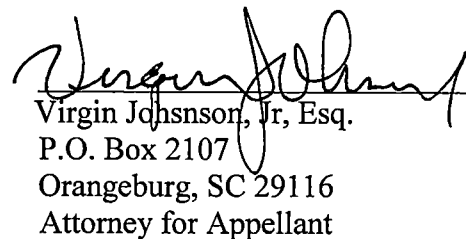 Virgin Johnson
Virgin Johsnson, Jr, Esq.
P.O. Box 2107
Orangeburg, SC 29116
Attorney for Appellant